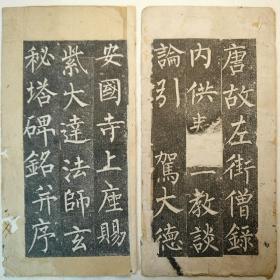 唐故左街僧錄
内供教談
論引 駕大德
安國寺上座賜
紫大達法師玄
秘塔碑銘并序